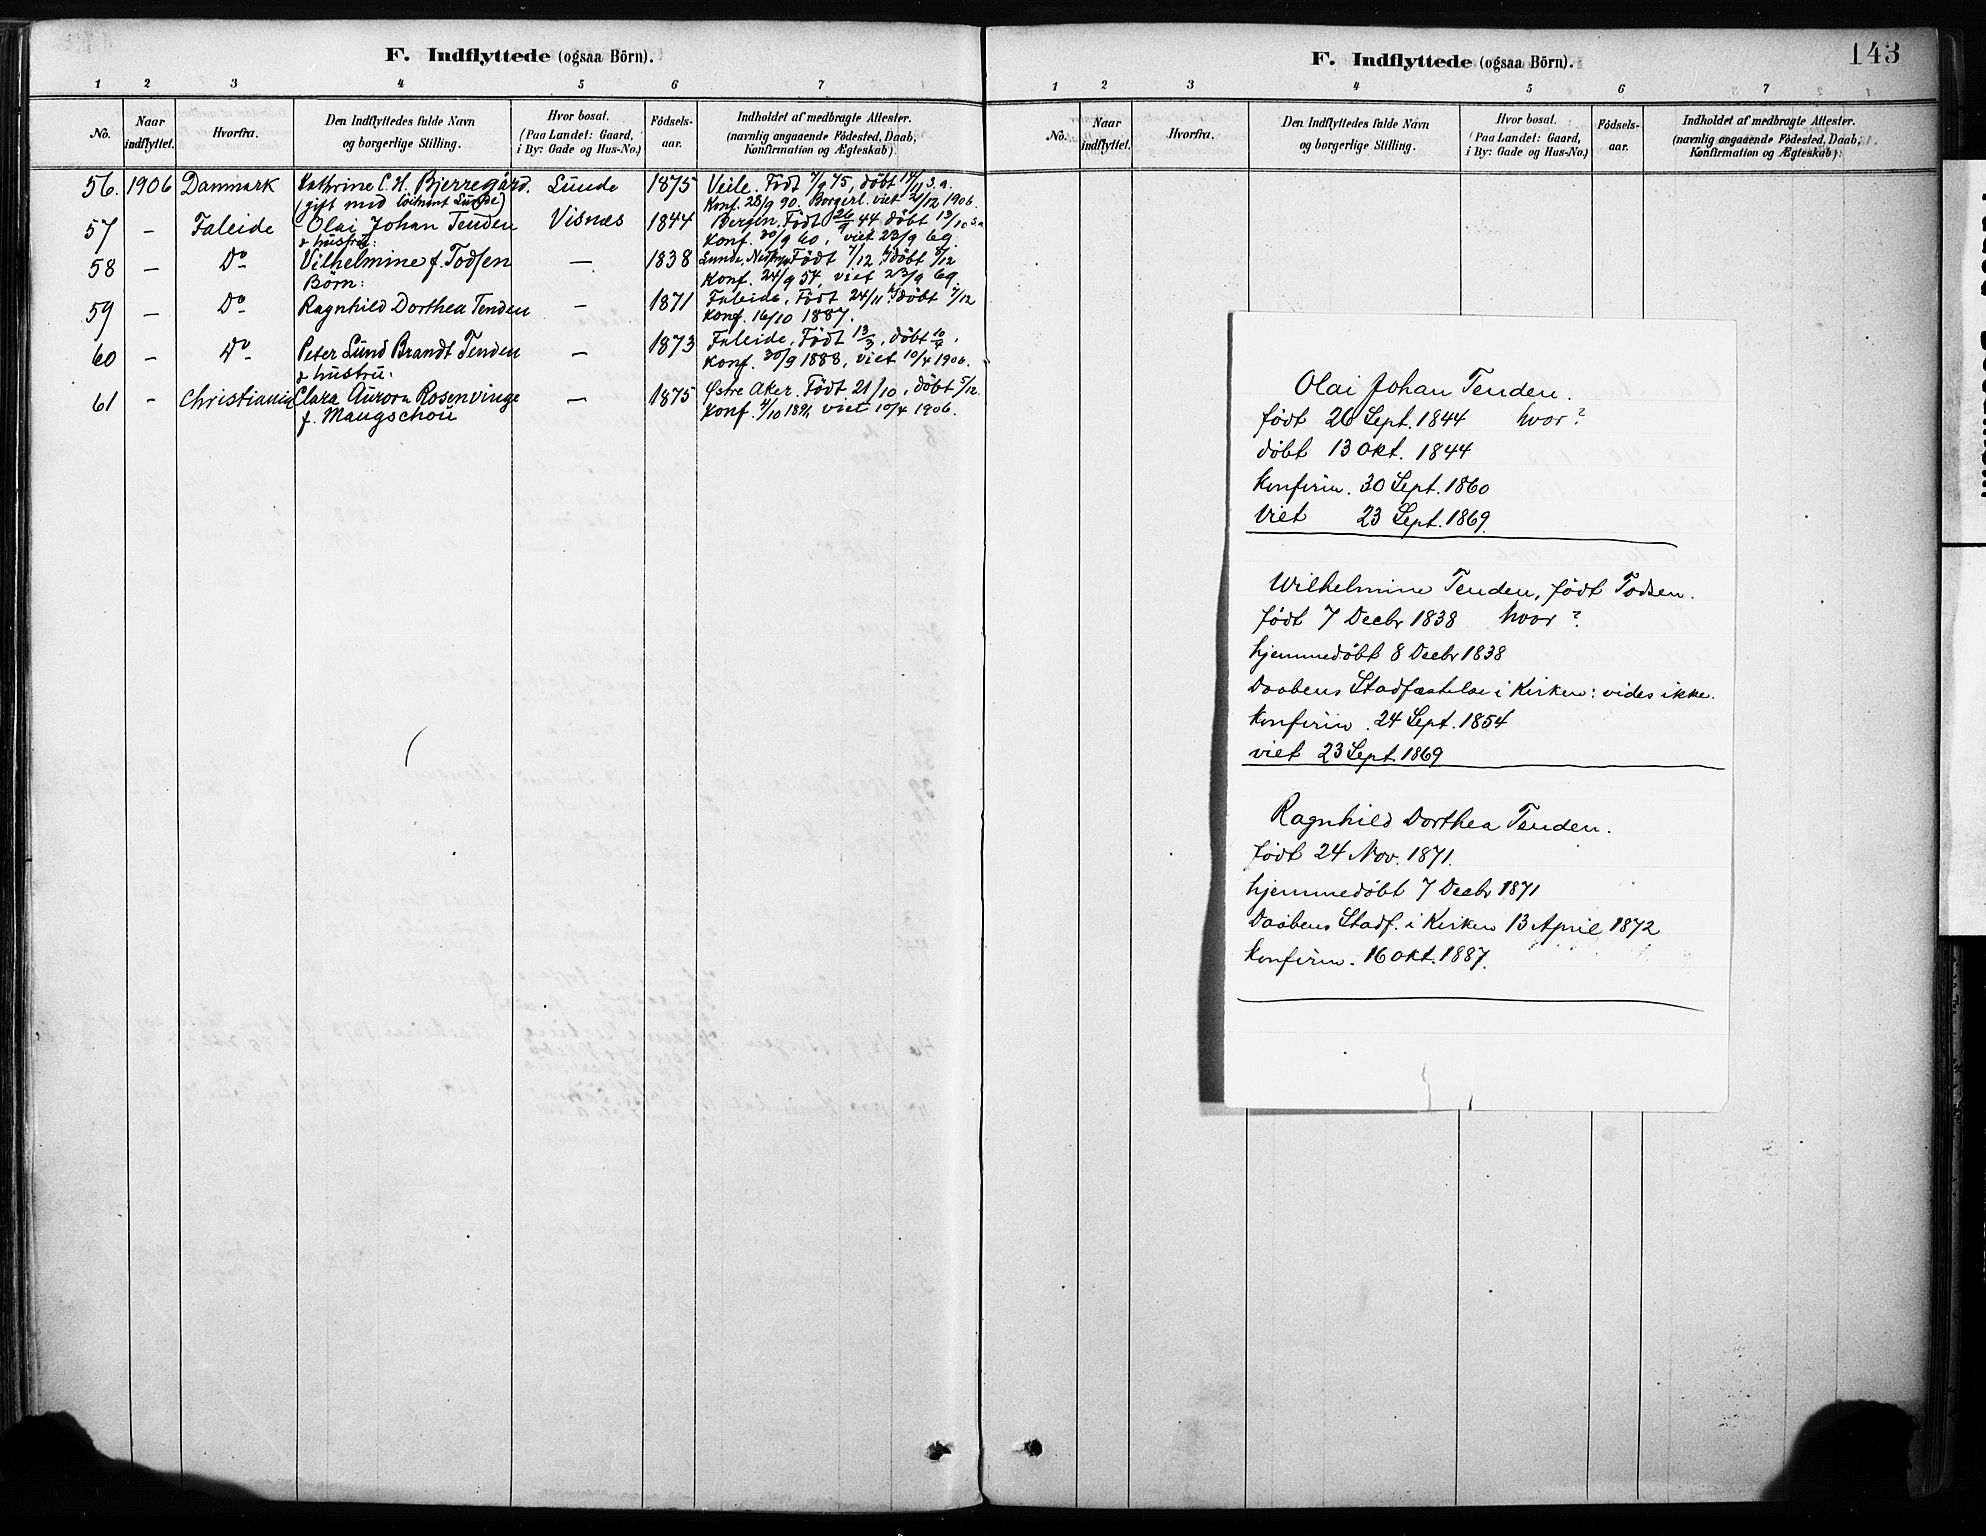 F. Indflyttede (ogsaa Börn).
1 2 3 4 5 6 7
No. Naar indflyttet. Hvorfra. Den Indflyttedes fulde Navn og borgerlige Stilling. Hvor bosat. (Paa Landet: Gaard, i By: Gade og Hus-No.) Födsels-aar. Indholdet af medbragte Attester. (navnlig angaaende Födested, Daab, Konfirmation og Ægteskab)
56. 1906 Danmark Kathrine C. H. Bjerregård. Lunde 1875 Veile. Födt 7/9 75, döbt 14/11 s.a.
(gift med Lunde) Konf. 28/9 90. Borgerl. viet 21/12 1906.
57 – Faleide Olai Johan Tenden Visnæs 1844 Bergen. Födt 26/9 44 döbt 13/10 s.a
& hustru: Konf. 30/9 60, viet 23/9 69.
58 – Do Vilhelmine f. Todsen — 1838 Lunde, Födt 7/12 döbt 8/12
Börn: Konf. 24/9 54, viet 23/9 69.
59 – Do Ragnhild Dorthea Tenden – 1871 Faleide, Födt 24/11 döbt 7/12
Konf 16/10 1887.
60 – Do Peter Lund Brandt Tenden – 1873 Faleide. Födt 13/3, döbt 10/4.
& hustru: Konf. 30/9 1888, viet 10/4 1906.
61 – Christiania Clara Aurora Rosenvinge — 1875 Østre Aker. Födt 21/10, döbt 5/12.
f. Maugschou Konf. 4/10 1891, viet 10/4 1906.
F. Indflyttede (ogsaa Börn).
143
1 2 3 4 5 6 7
No. Naar indflyttet. Hvorfra. Den Indflyttedes fulde Navn og borgerlige Stilling. Hvor bosat. (Paa Landet: Gaard, i By: Gade og Hus-No.) Födsels-aar. Indholdet af medbragte Attester. (navnlig angaaende Födested, Daab, Konfirmation og Ægteskab).
Olai Johan Tenden.
født 26 Sept. 1844 hvor?
døbt 13 Okt. 1844
Konfirm. 30 Sept. 1860
Viet 23 Sept. 1869.
Wilhelmine Tenden, født Todsen.
født 7 Decbr 1838 hvor?
hjemmedøbt 8 Decbr 1838
Daabens Stadfæstelse i Kirken: vides ikke.
Konfirm. 24 Sept. 1854
viet 23 Sept. 1869
Ragnhild Dorthea Tenden.
født 24 Nov. 1871.
hjemmedøbt 7 Decbr 1871
Daabens Stadf. i Kirken 13 April 1872
Konfirm. 16 Okt. 1887.